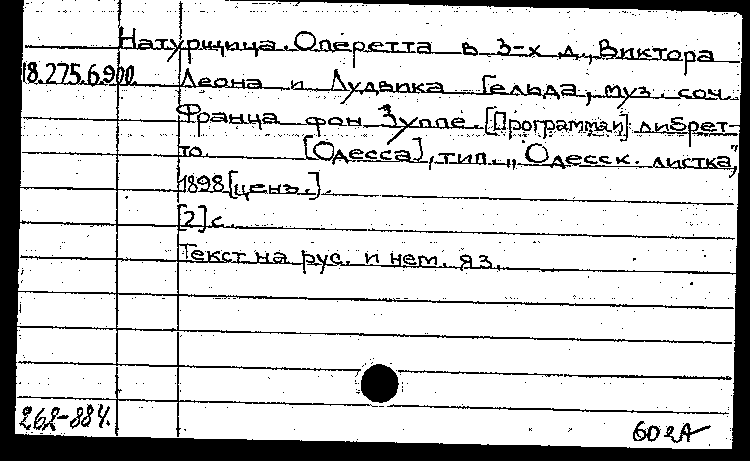 Натурщица. Оперетта в 3-х д., Виктора
18.275.6.900. Леона и Лудвика Гельда, муз. соч.
Франца фон Зуппе. [Программа и] либрет-
то. [Одесса], тип. „Одесск. листка",
1898 [ценз.].
[2] с.
Текст на рус. и нем. яз.
262-884.